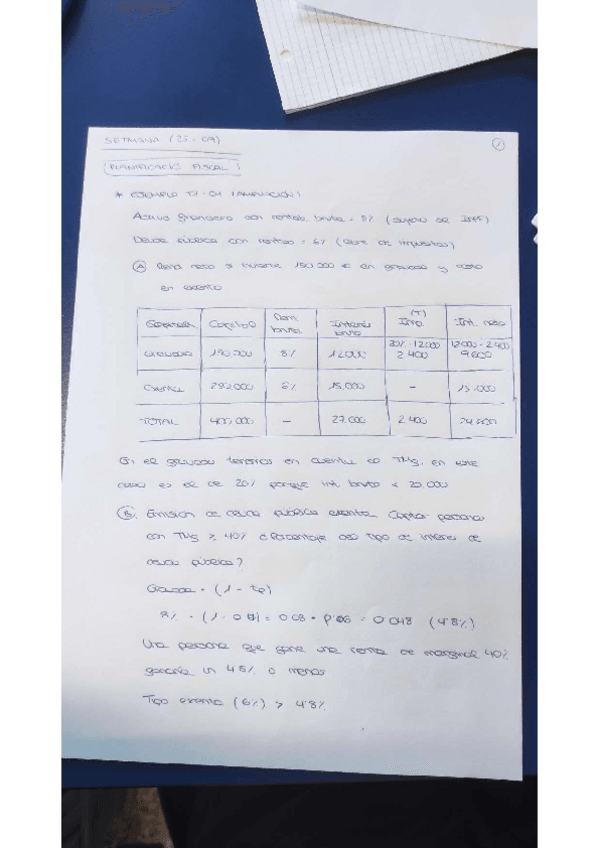 SETMANA (25-09)
1
PLANIFICACIÓ FISCAL
* EJEMPLO T2-04 (AMPLIACIÓN)
Activo financiero con rentab. bruta = 8% (sujeto de IRPF)
Deuda pública con rentab = 6% (libre de impuestos)
A Renta neta si invierte 150.000 € en gravado y resto
en exento
Capital Rent. bruta Interés bruto (T) Imp. Int. neto
Gravado 150.000 8% 12.000 20%·12.000 2.400 12.000 - 2.400 9.600
Exento 250.000 6% 15.000 - 15.000
TOTAL 400.000 - 27.000 2.400 24.600
En el gravado tenemos en cuenta el TMg, en este
caso es el de 20% porque int. bruto < 20.000
B. Emisión de deuda pública exenta. Captar personas
con TMg ≥ 40% ¿Porcentaje del tipo de interés de
deuda pública?
Gravado = (1 - tp)
8% · (1 - 0'4) = 0'08 · 0'06 = 0'048 (4'8%)
Una persona que gane una renta de marginal 40%
ganaría un 4'8% o menos
Tipo exento (6%) > 4'8%